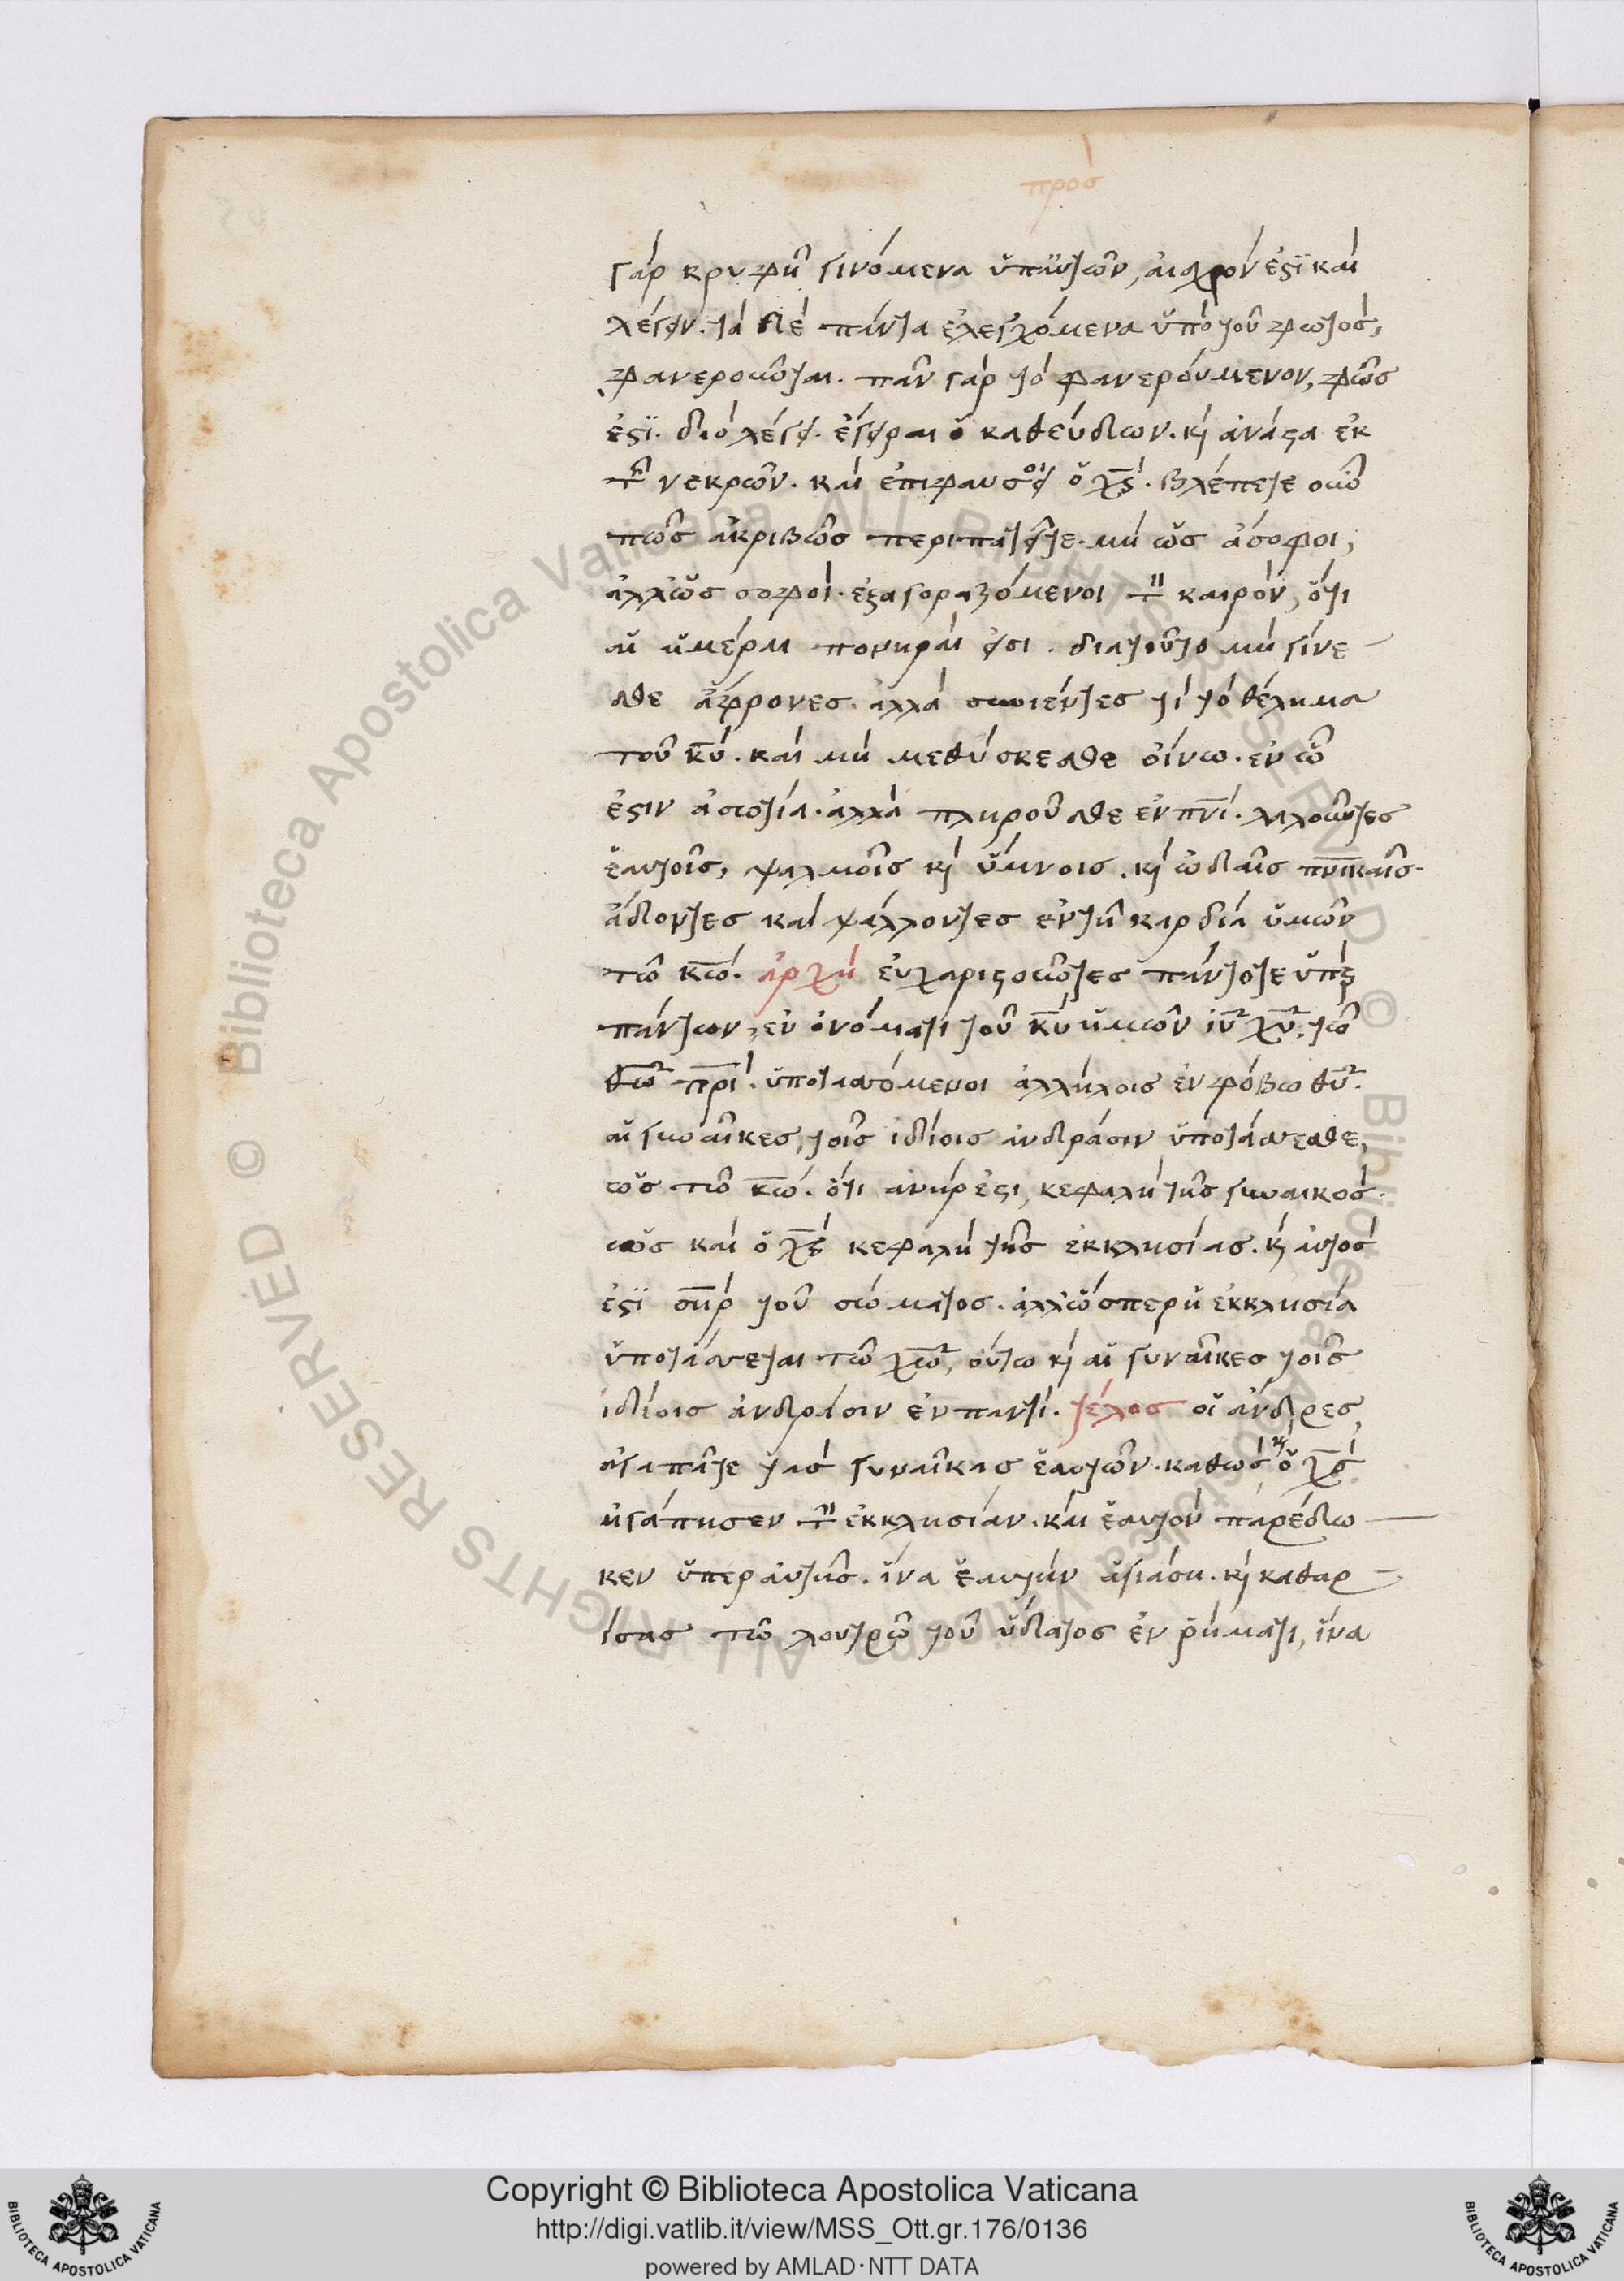 προσ
γὰρ κρυφῆ γινόμενα ὑπ᾽αὐτῶν, αἰσχρόν ἐστϊ καὶ
λέγειν. τὰ δὲ πάντα ἐλεγχόμενα ὑπὸ τοῦ φωτὸς,
φανεροῦται. πᾶν γὰρ τὸ φανερούμενον, φῶς
ἐστϊ. διὸ λέγει. ἔγειραι ὁ καθεύδων. κὶ ἀνάστα ἐκ
τῶν νεκρῶν. καὶ ἐπιφαύσοι ει ὁ χς. βλέπετε οὖν
πῶς ἀκριβῶς περιπατεῖτε. μὴ ὡς ἄσοφοι,
ἀλλ᾽ὡς σοφοὶ. ἐξαγοραζόμενοι τὸν καιρὸν, ὅτι
αἱ ἡμέραι πονηραὶ εἰσι. διατοῦτο μὴ γίνε
σθε ἄφρονες. ἀλλὰ συνιέντες τὶ τὸ θέλημα
τοῦ κυ. καὶ μὴ μεθύσκεσθε οἴνω. ἐν ᾧ
ἐστιν ἀσωτία. ἀλλὰ πληροῦσθε ἐν πνι. λαλοῦντες
ἑαυτοῖς, ψαλμοῖς κὶ ὕμνοις. κὶ ὠδαῖς πνικαῖς.
ἄδοντες καὶ ψάλλοντες ἐν τῆ καρδία ὑμῶν
τῶ κω. ἀρχὴ εὐχαριστοῦντες πάντοτε ὑπὲρ
πάντων, ἐν ὀνόματι τοῦ κυ ἡμῶν ιυ χυ. τῶ
θω πρι. ὑποτασσόμενοι ἀλλήλοις ἐν φόβω θυ.
αἱ γυναῖκες, τοῖς ἰδίοις ἀνδράσιν ὑποτάσσεσθε,
ὡς τῶ κω. ὅτι ἀνήρ ἐστι, κεφαλὴ τῆς γυναικὸς.
ὡς καὶ ὁ χς κεφαλὴ τῆς ἐκκλησίας. κὶ αὐτὸς
ἐστϊ σηρ τοῦ σώματος. ἀλλ᾽ὥσπερ ἡ ἐκκλησία
ὑποτάσσεται τῶ χω, οὕτω κὶ αἱ γυναῖκες τοῖς
ἰδίοις ἀνδράσιν ἐν παντὶ. τέλος οἱ ἄνδρες,
ἀγαπᾶτε τὰς γυναῖκας ἑαυτῶν. καθὼς κὶ ὁ χς
ἠγάπησεν τὴν ἐκκλησίαν. καὶ ἑαυτὸν παρέδω
κεν ὑπερ αὐτῆς. ἵνα ἑαυτὴν ἁγιάση. κὶ καθαρ
ίσας τῶ λουτρῶ τοῦ ὕδατος ἐν ῥήματι, ἵνα
Biblioteca Apostolica Vaticana ALL RIGHTS RESERVED © Biblioteca Apostolica Vaticana ALL RIGHTS RESERVED ©
Copyright © Biblioteca Apostolica Vaticana
http://digi.vatlib.it/view/MSS_Ott.gr.176/0136
powered by AMLAD·NTT DATA
BIBLIOTECA APOSTOLICA VATICANA
BIBLIOTECA APOSTOLICA VATICANA